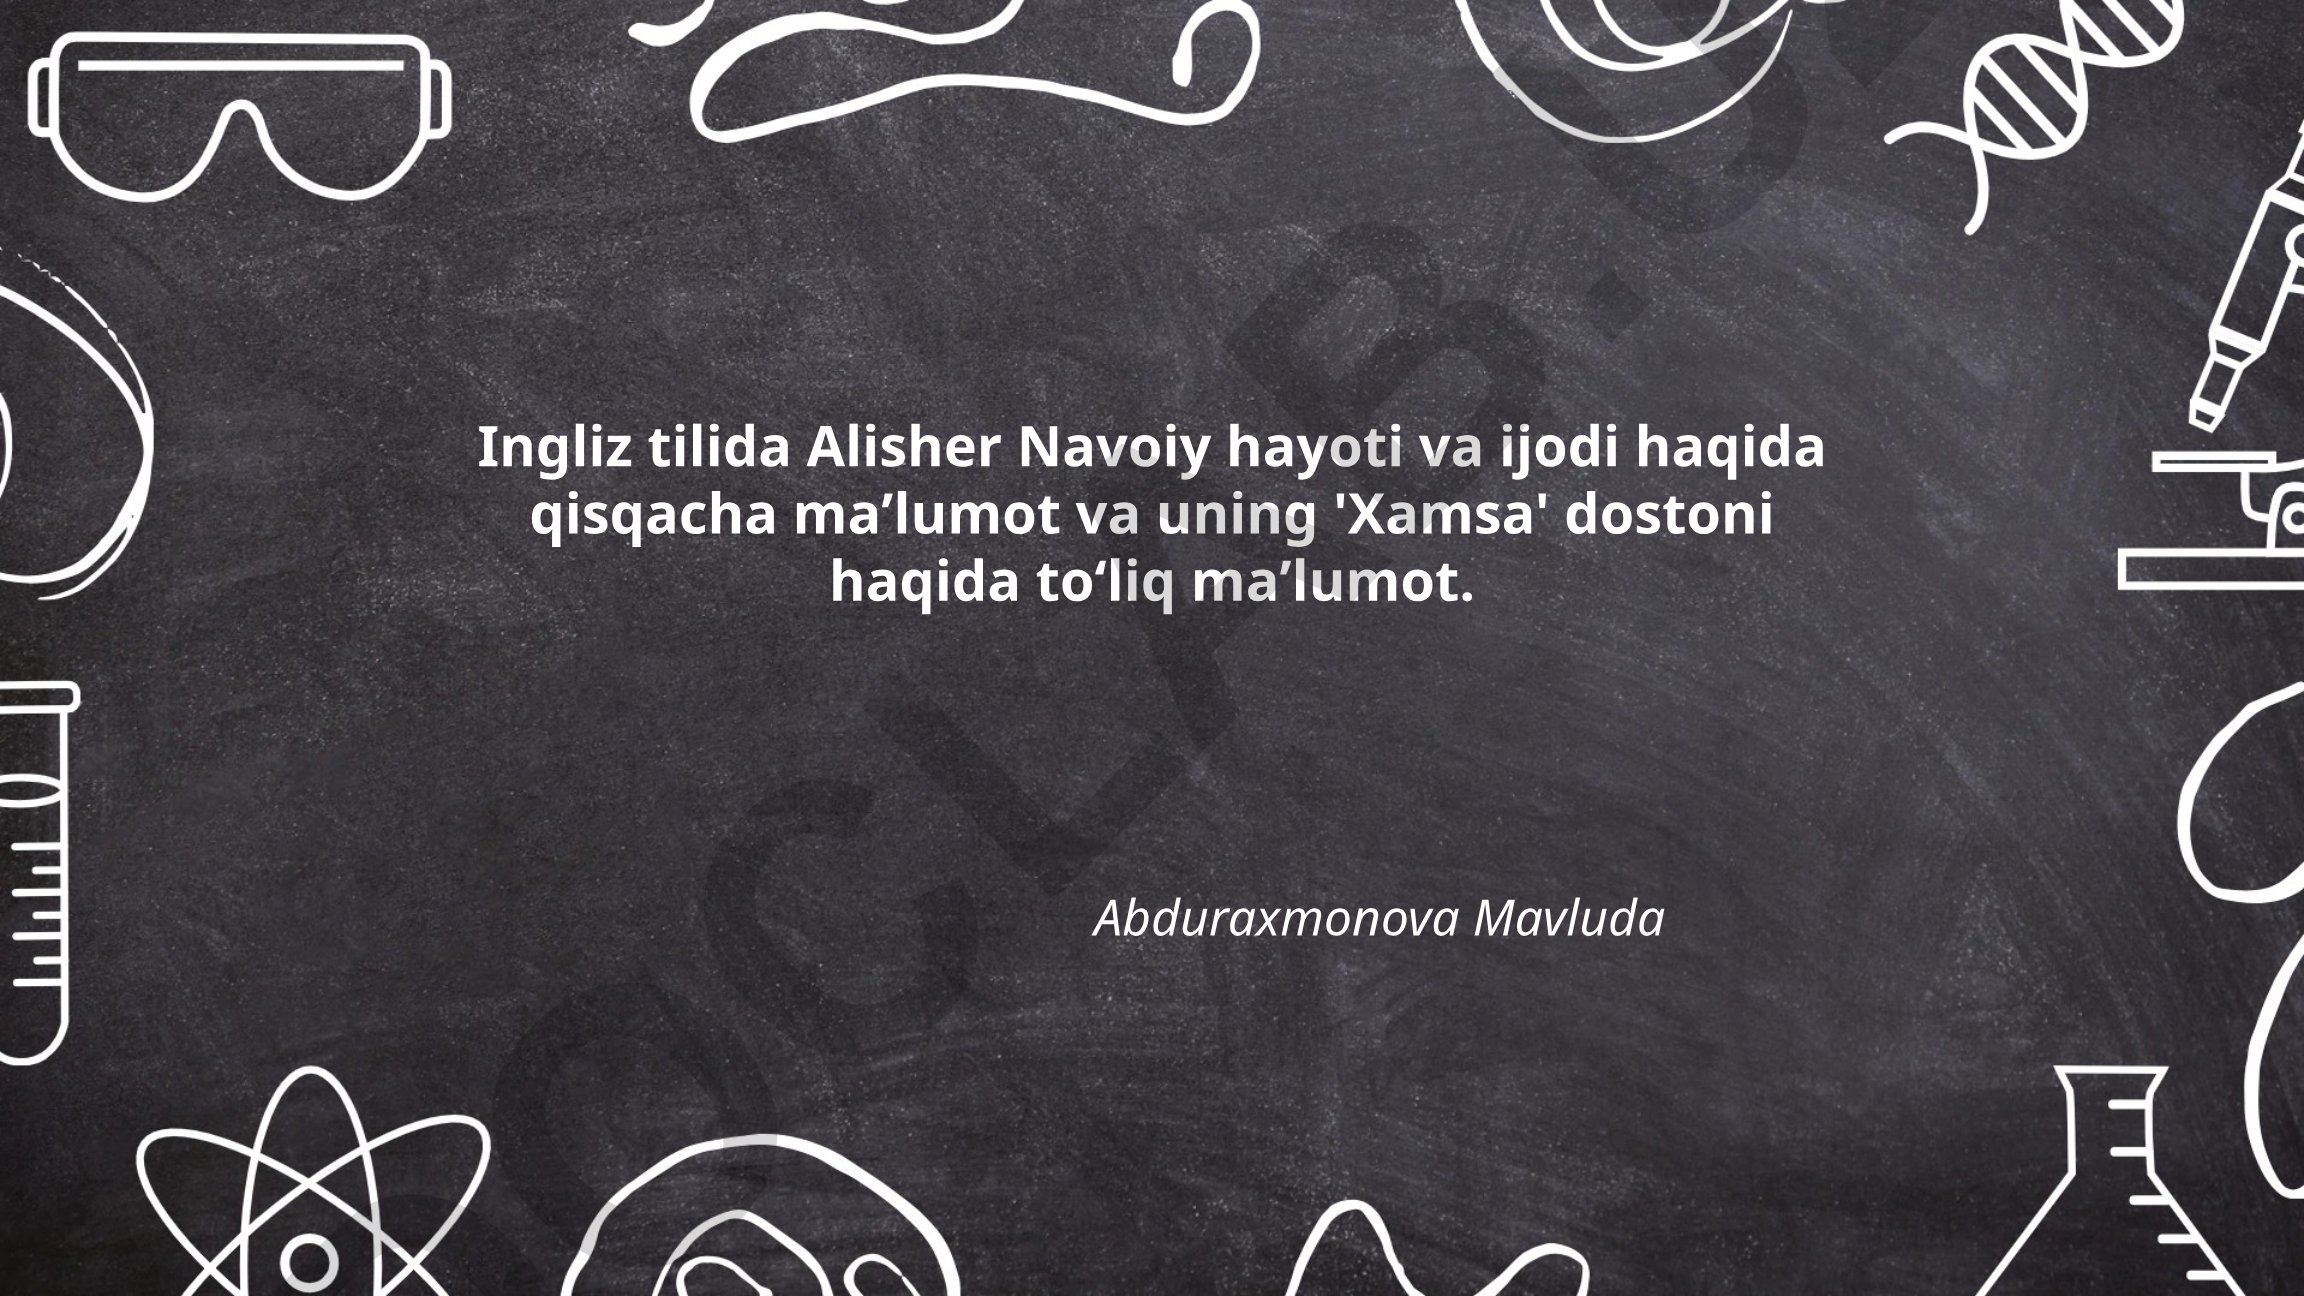 Ingliz tilida Alisher Navoiy hayoti va ijodi haqida
qisqacha ma’lumot va uning 'Xamsa' dostoni
haqida to‘liq ma’lumot.
Abduraxmonova Mavluda